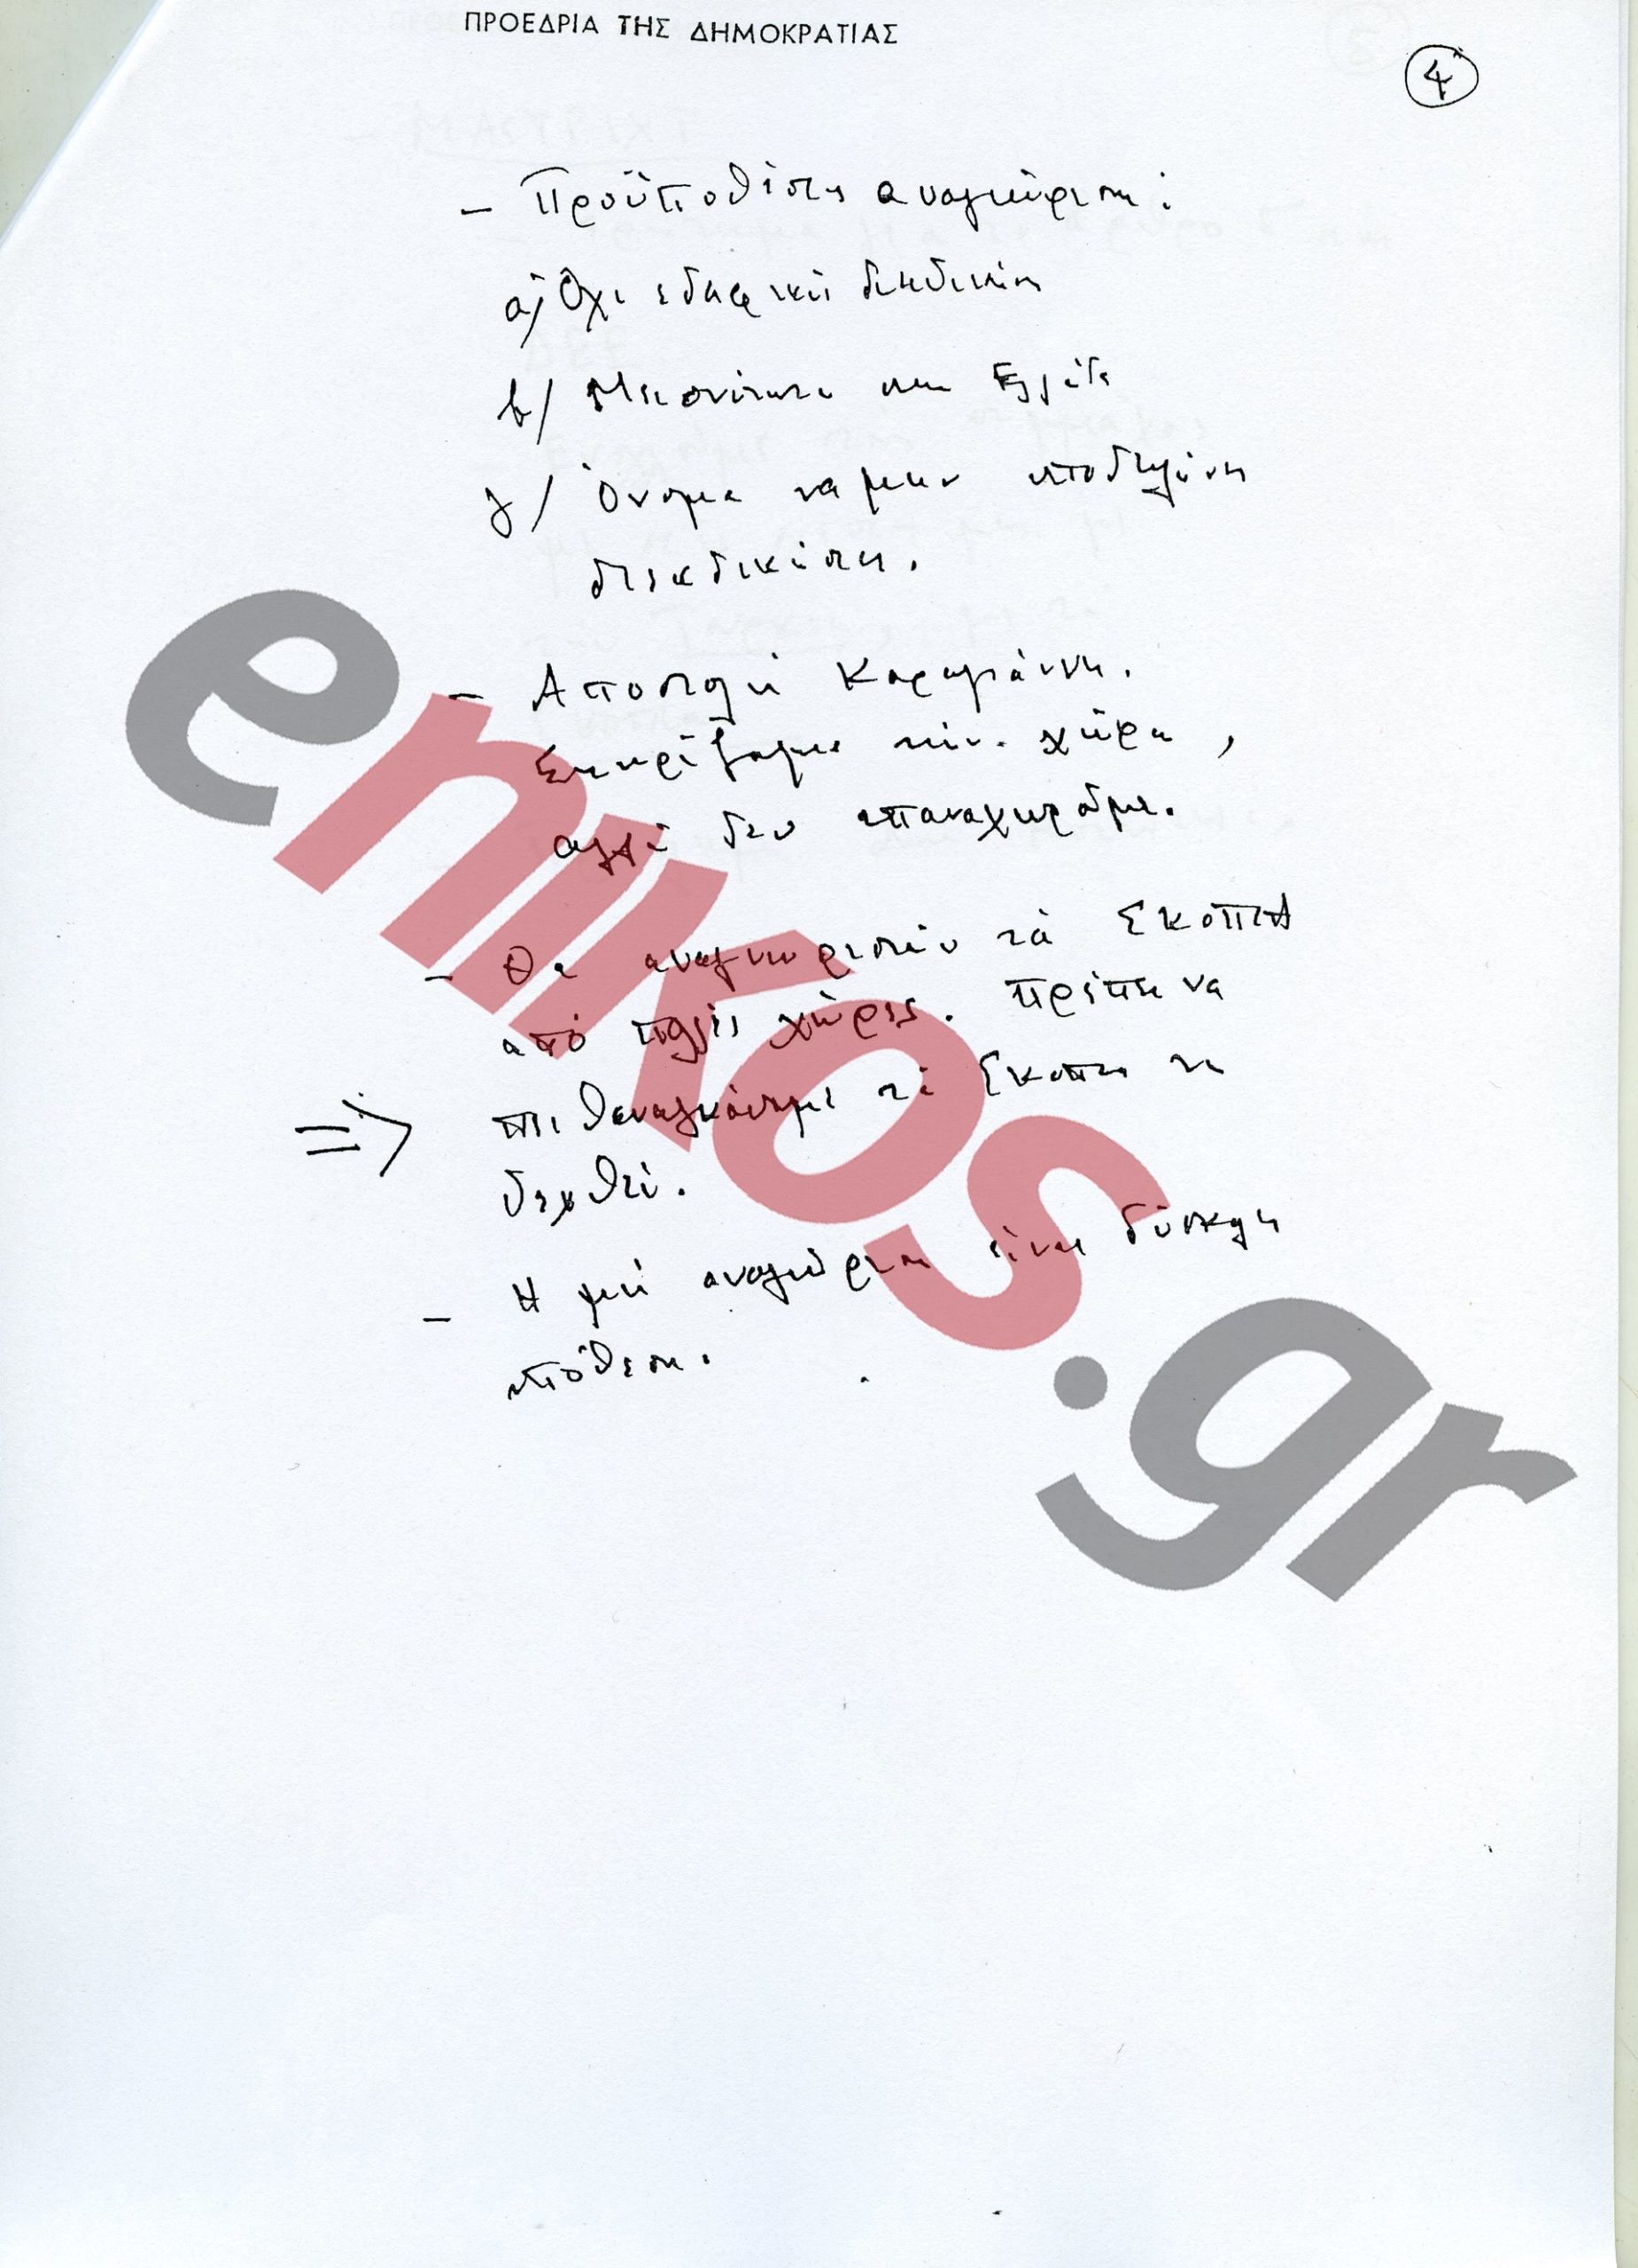 ΠΡΟΕΔΡΙΑ ΤΗΣ ΔΗΜΟΚΡΑΤΙΑΣ
4
- Προϋποθέσεις αναγνώρισης:
α/ Όχι εδαφικές διεκδικήσεις
β/ Μειονότητα στην Ελλάδα
γ/ Όνομα να μην υποδηλώνει
διεκδικήσεις.
- Αποστολή Καραγιάννη.
Στηρίζουμε την χώρα,
αλλά δεν υπαναχωρούμε.
- Θα αναγνωρισθούν τα Σκόπια
από πολλές χώρες. Πρέπει να
=> πειθαναγκάσουμε τα Σκόπια να
δεχθεί.
- Η μη αναγνώριση είναι δύσκολη
υπόθεση.
enikos.gr